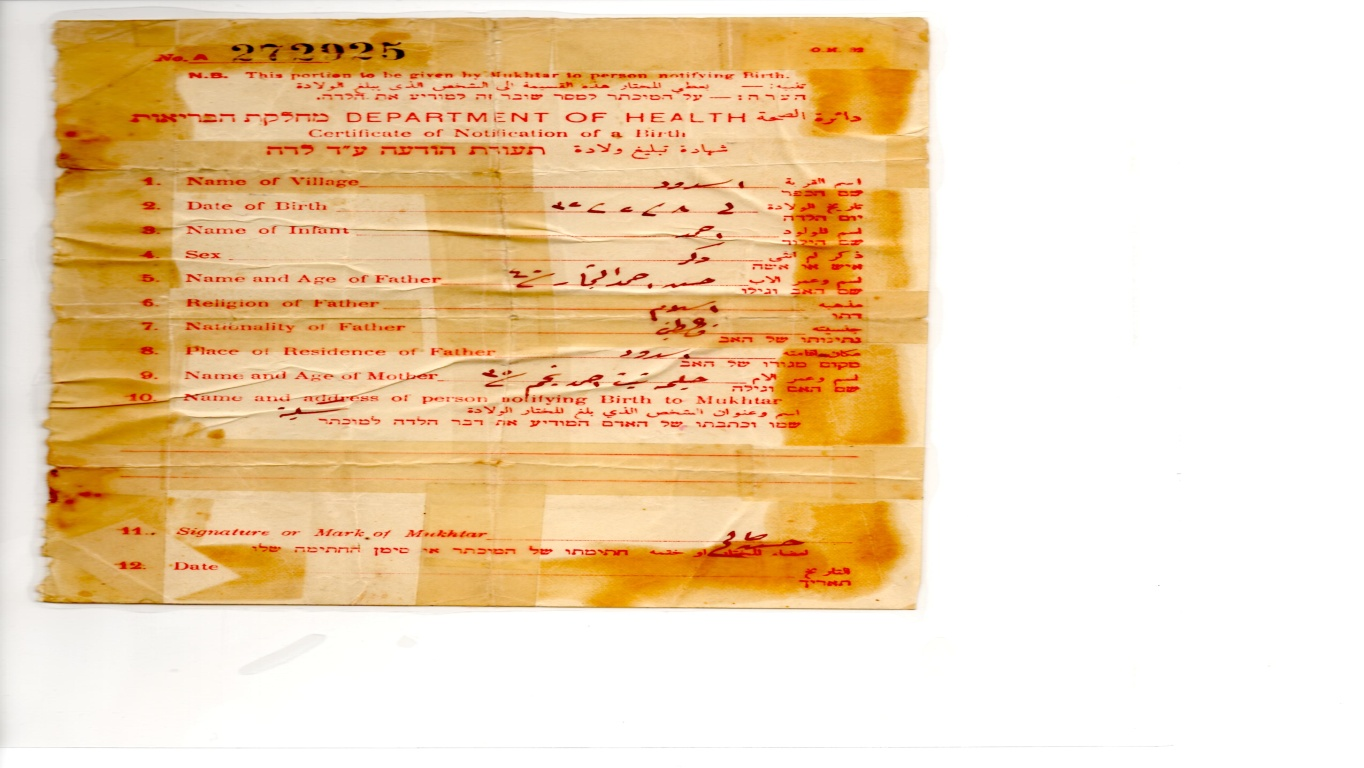 No. A 272925 O.H. 92
N.B. This portion to be given by Mukhtar to person notifying Birth.
تنبيه: — يعطي المختار هذه القسيمة الى الشخص الذي يبلغ الولادة
הערה: — על המוכתר למסר שובר זה למודיע את הלדה.
דائرة الصحة DEPARTMENT OF HEALTH מחלקת הבריאות
Certificate of Notification of a Birth
شهادة تبليغ ولادة תעודת הודעה ע״ד לדה
1. Name of Village اسدود اسم القرية
שם הכפר
2. Date of Birth تاريخ الولادة
יום הלדה
3. Name of Infant احمد اسم المولود
שם הילוד
4. Sex ذكر ذكر ام انثى
איש או אשה
5. Name and Age of Father حسن احمد النجار اسم وعمر الاب
שם האב וגילו
6. Religion of Father اسلام مذهبه
דתו
7. Nationality of Father جنسيته
נתינותו של האב
8. Place of Residence of Father اسدود مكان اقامته
מקום מגורו של האב
9. Name and Age of Mother حليمه بنت احمد نجم اسم وعمر الام
שם האם וגילה
10. Name and address of person notifying Birth to Mukhtar
اسم وعنوان الشخص الذي بلغ المختار الولادة
שמו וכתבתו של האדם המודיע את דבר הלדה למוכתר
11. Signature or Mark of Mukhtar
امضاء المختار او ختمه חתימתו של המוכתר או סימן החתימה שלו
12. Date التاريخ
תאריך